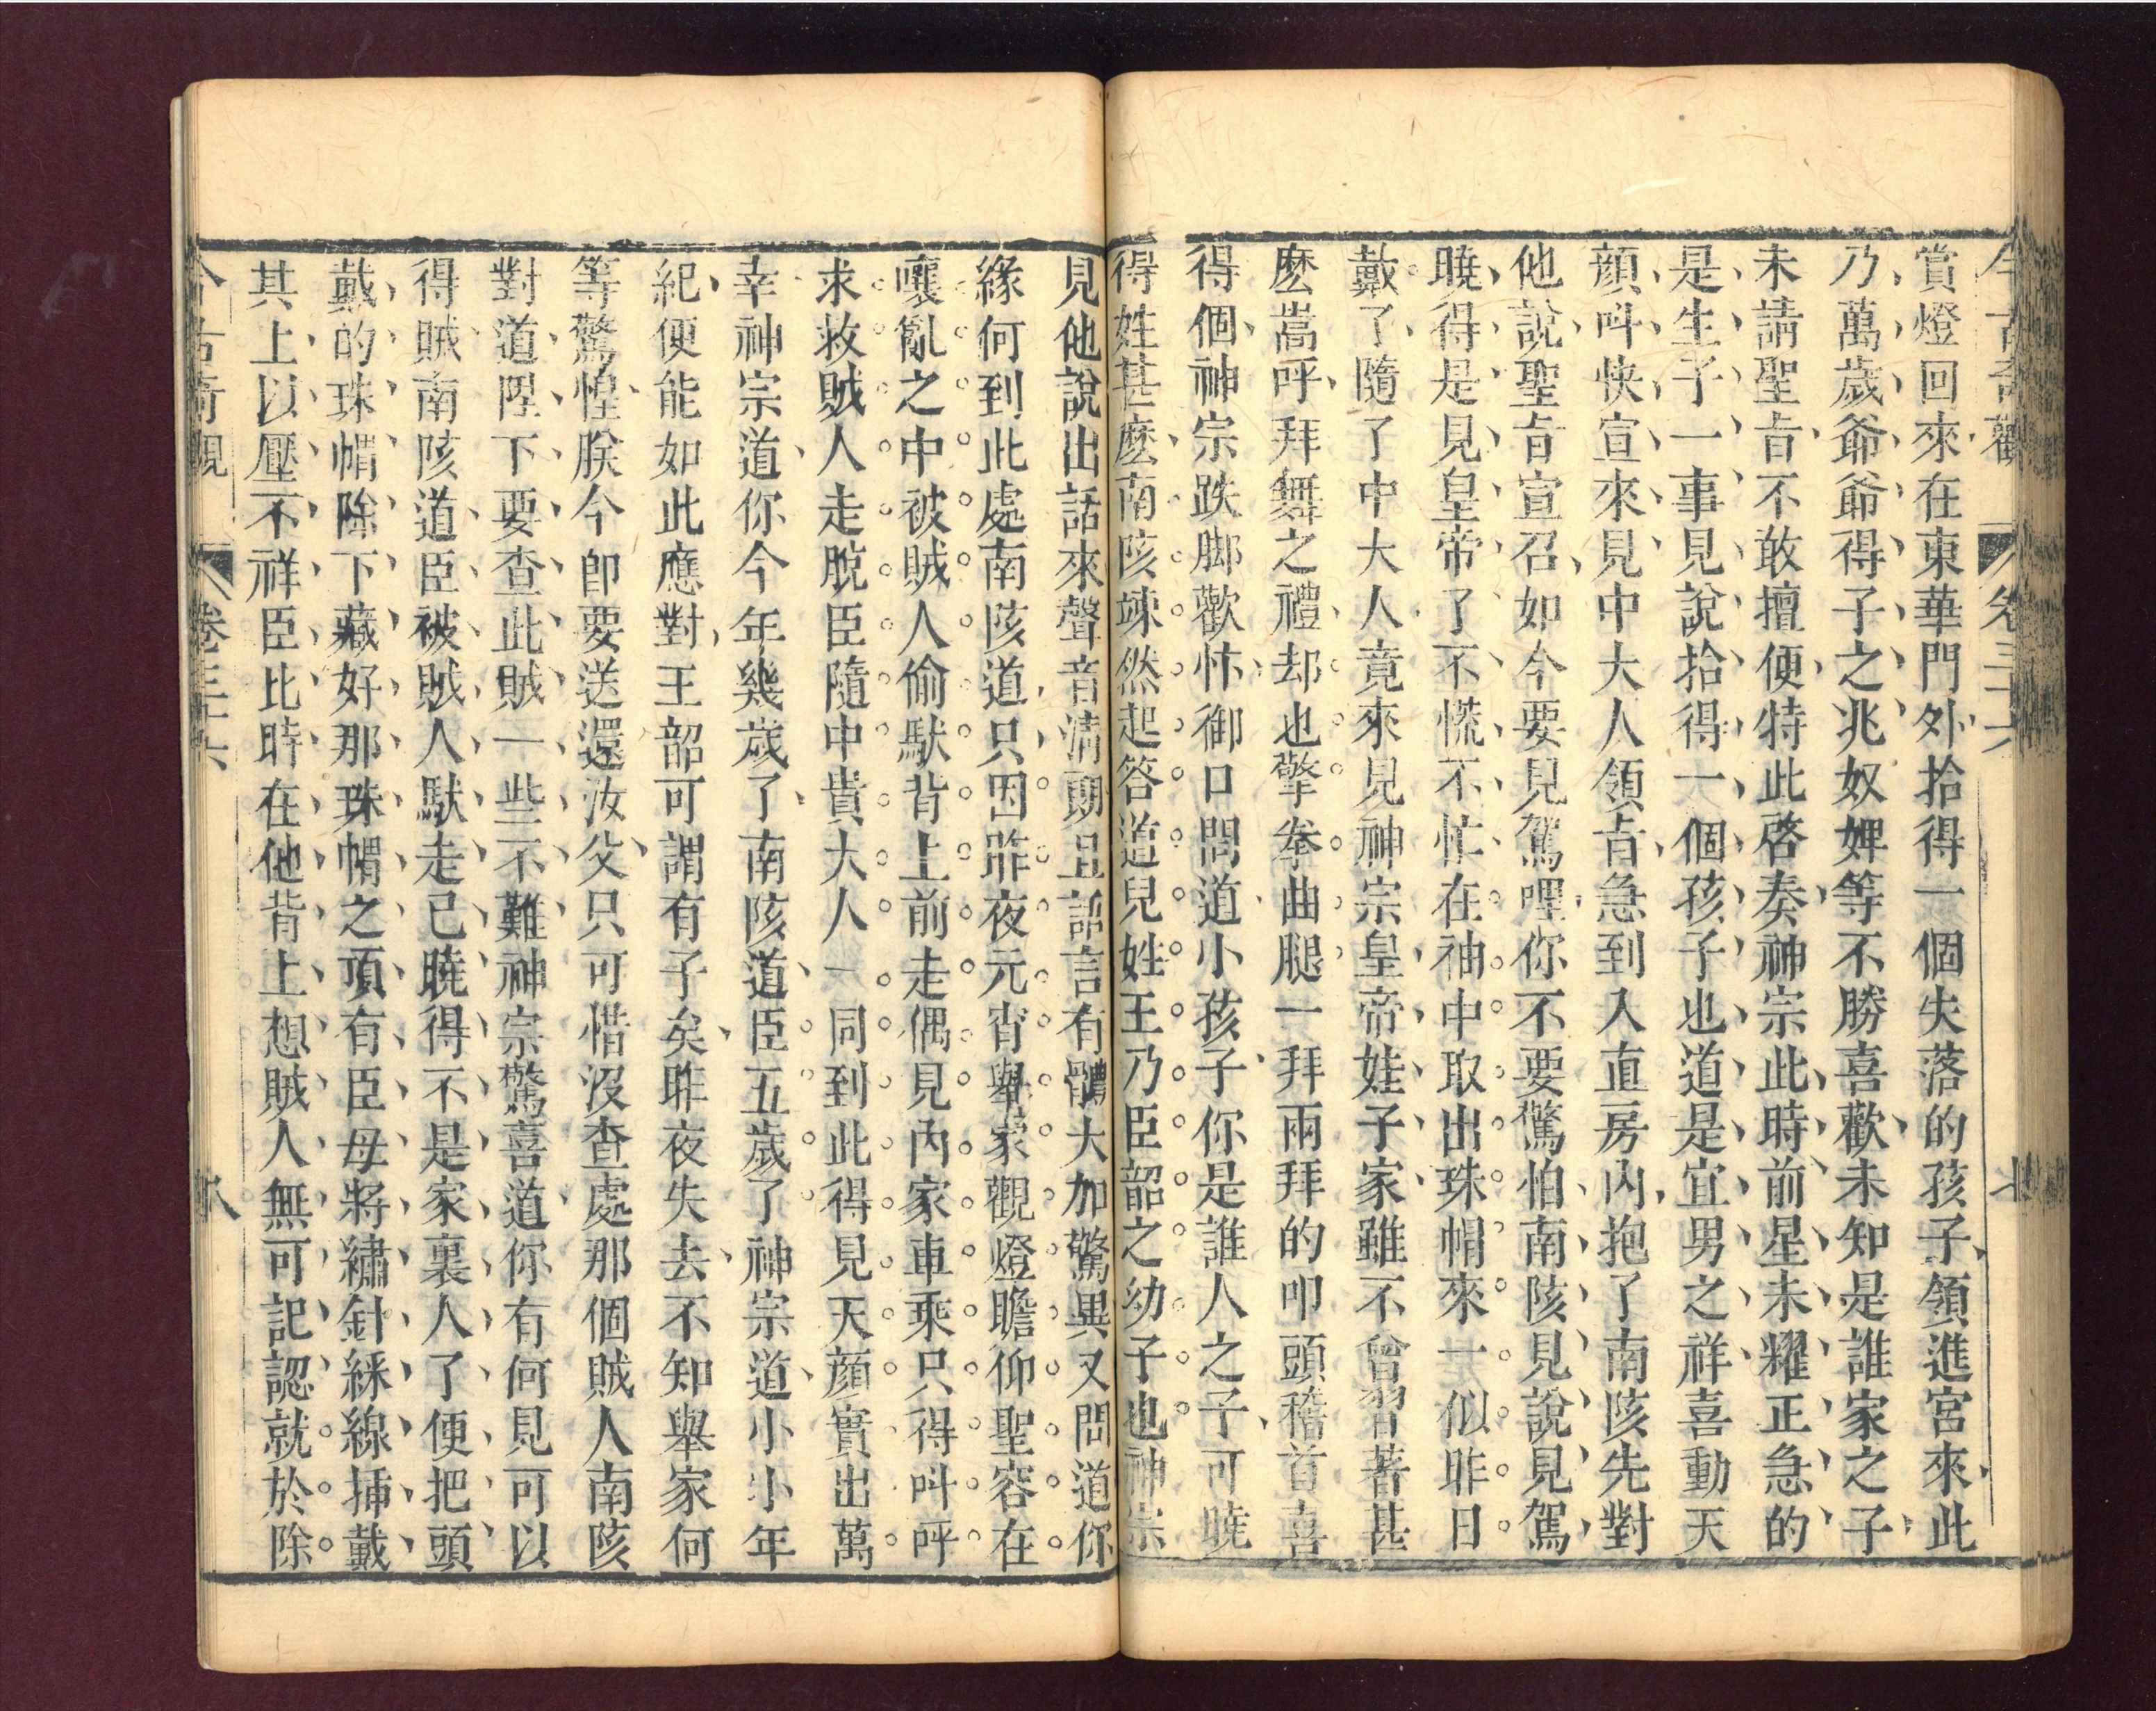 今古奇觀 卷三十六 七
賞燈回來、在東華門外、拾得一個失落的孩子、領進宮來、此
乃萬歲爺爺得子之兆、奴婢等不勝喜歡、未知是誰家之子、
未請聖旨、不敢擅便、特此啓奏、神宗此時前星未耀、正急的
是生子一事、見說拾得一個孩子、也道是宜男之祥、喜動天
顔、呌快宣來見、中大人領旨、急到入直房內、抱了南陔、先對
他說、聖旨宣召、如今要見駕哩、你不要驚怕、南陔見說見駕、
曉得是見皇帝了、不慌不忙、在袖中取出珠帽來、一似昨日
戴了、隨了中大人竟來見神宗皇帝、娃子家雖不曾習著甚
麽嵩呼拜舞之禮、却也擎拳曲腿、一拜兩拜的叩頭稽首、喜
得個神宗跌脚歡忭、御口問道、小孩子、你是誰人之子、可曉
得姓甚麽、南陔竦然起答道、兒姓王、乃臣韶之幼子也、神宗
見他說出話來、聲音清朗、且語言有體、大加驚異、又問道、你
緣何到此處、南陔道、只因昨夜元宵舉家觀燈、瞻仰聖容、在
嚷亂之中、被賊人偷馱背上前走、偶見內家車乘、只得呌呼
求救、賊人走脫、臣隨中貴大人一同到此、得見天顔、實出萬
幸、神宗道、你今年幾歲了、南陔道、臣五歲了、神宗道、小小年
紀、便能如此應對、王韶可謂有子矣、昨夜失去、不知舉家何
等驚惶、朕今卽要送還汝父、只可惜沒查處那個賊人、南陔
對道、陛下要查此賊、一些不難、神宗驚喜道、你有何見可以
得賊、南陔道、臣被賊人馱走、已曉得不是家裏人了、便把頭
戴的珠帽除下藏好、那珠帽之頂、有臣母將繡針綵線揷戴
其上、以壓不祥、臣比時在他背上、想賊人無可記認、就於除
今古奇觀 卷三十六 八